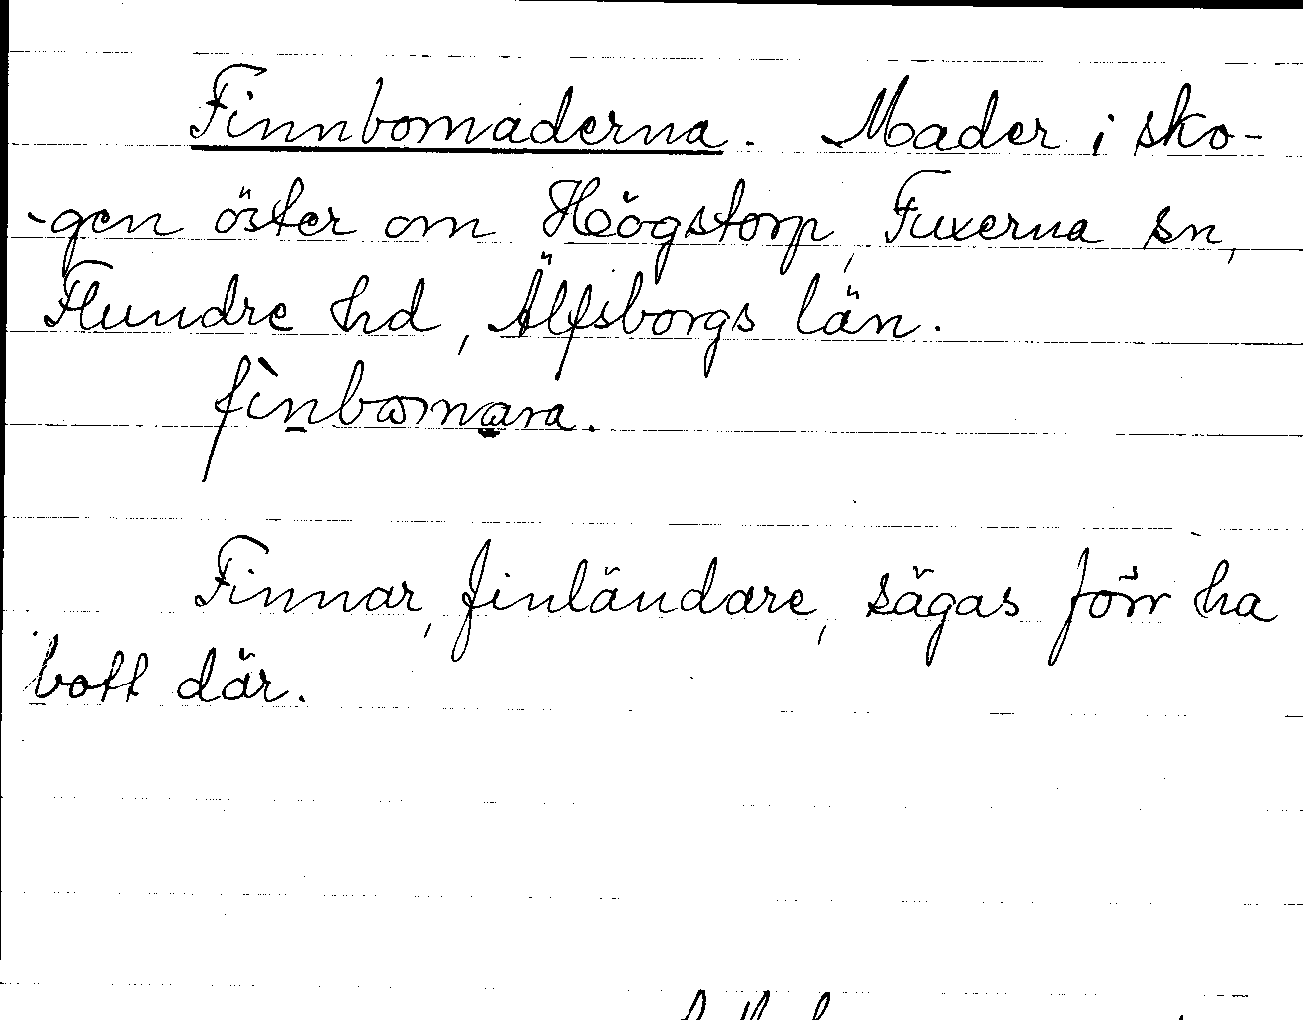 Finnbomaderna. Mader i sko-
-gen öster om Högstorp, Fuxerna sn,
Flundre hd, Älfsborgs län.
fìnbomara.
Finnar, finländare, sägas förr ha
bott där.